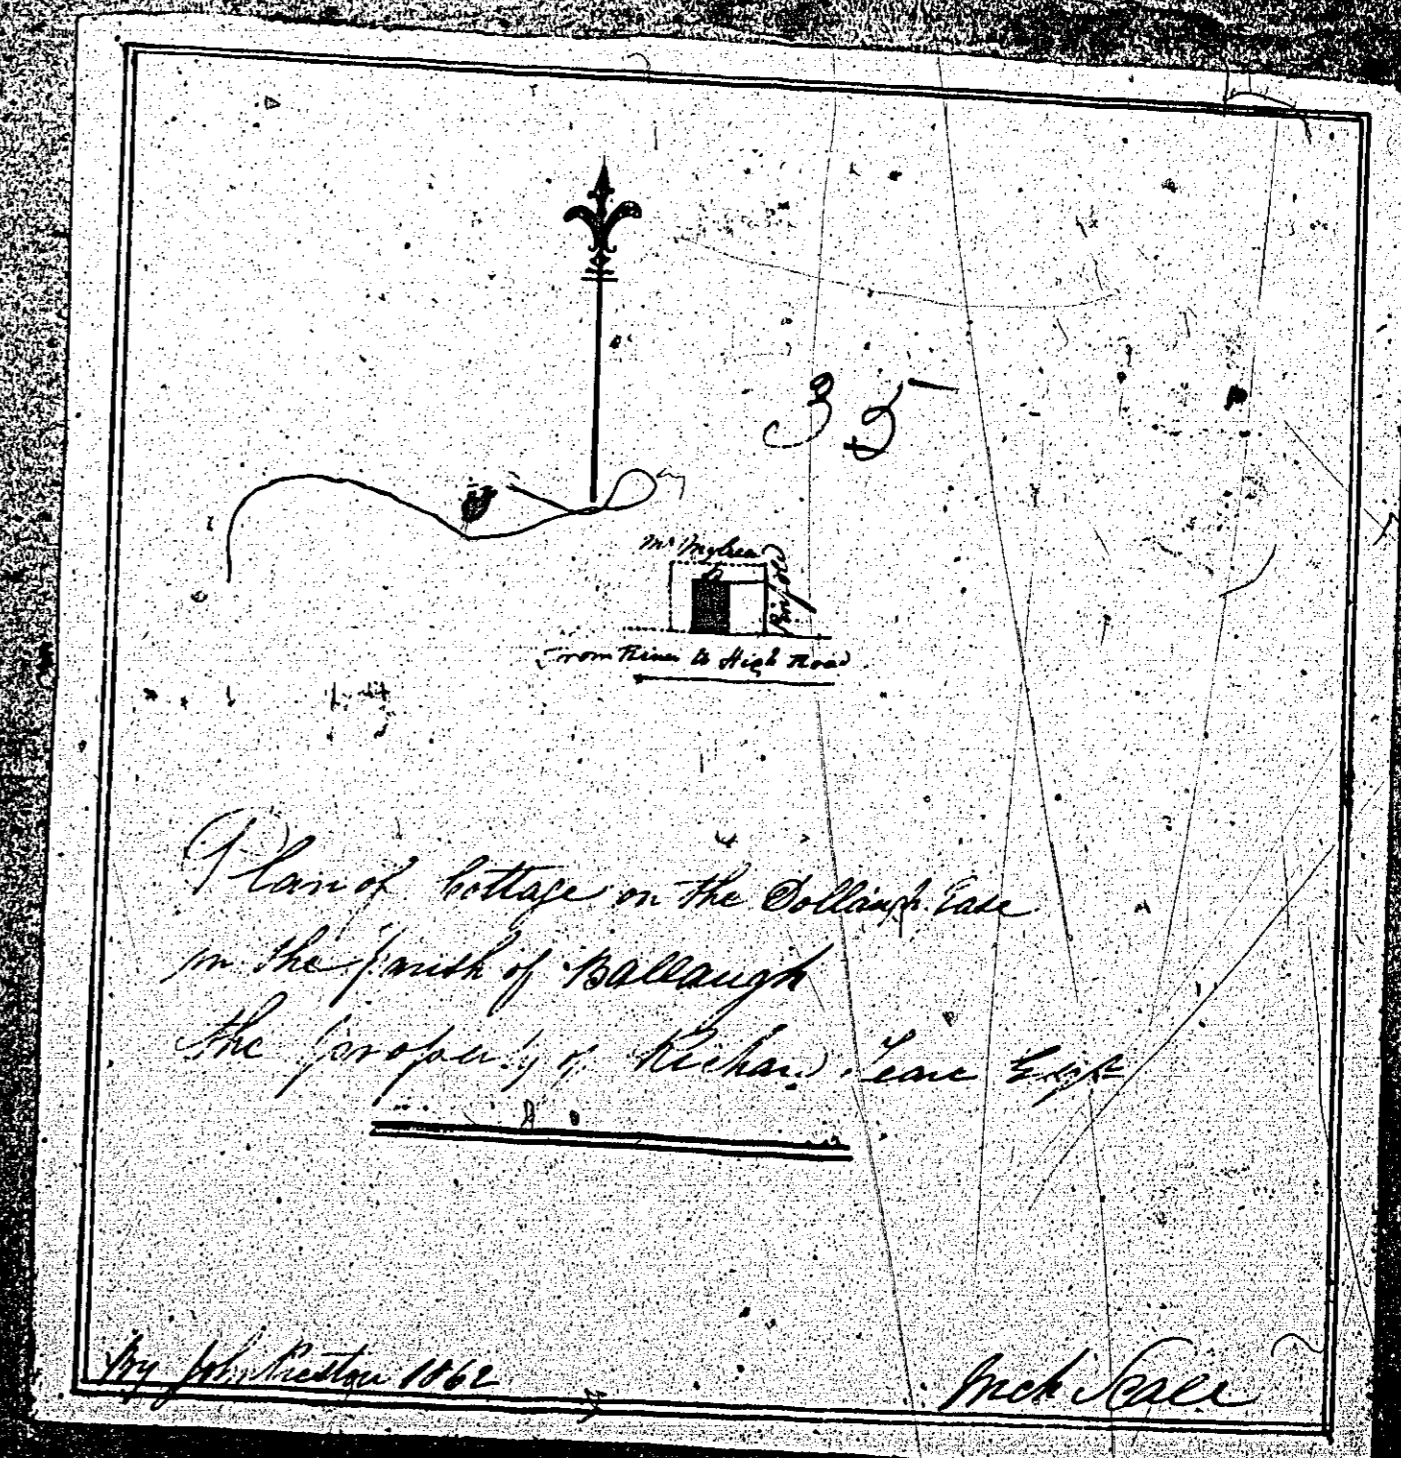 35
Mr Mylrea
From River to High Road
Plan of Cottage on the Dollaugh East
in the parish of Ballaugh
the property of Richard Teare Esqr
By John 1862
Inch Scale